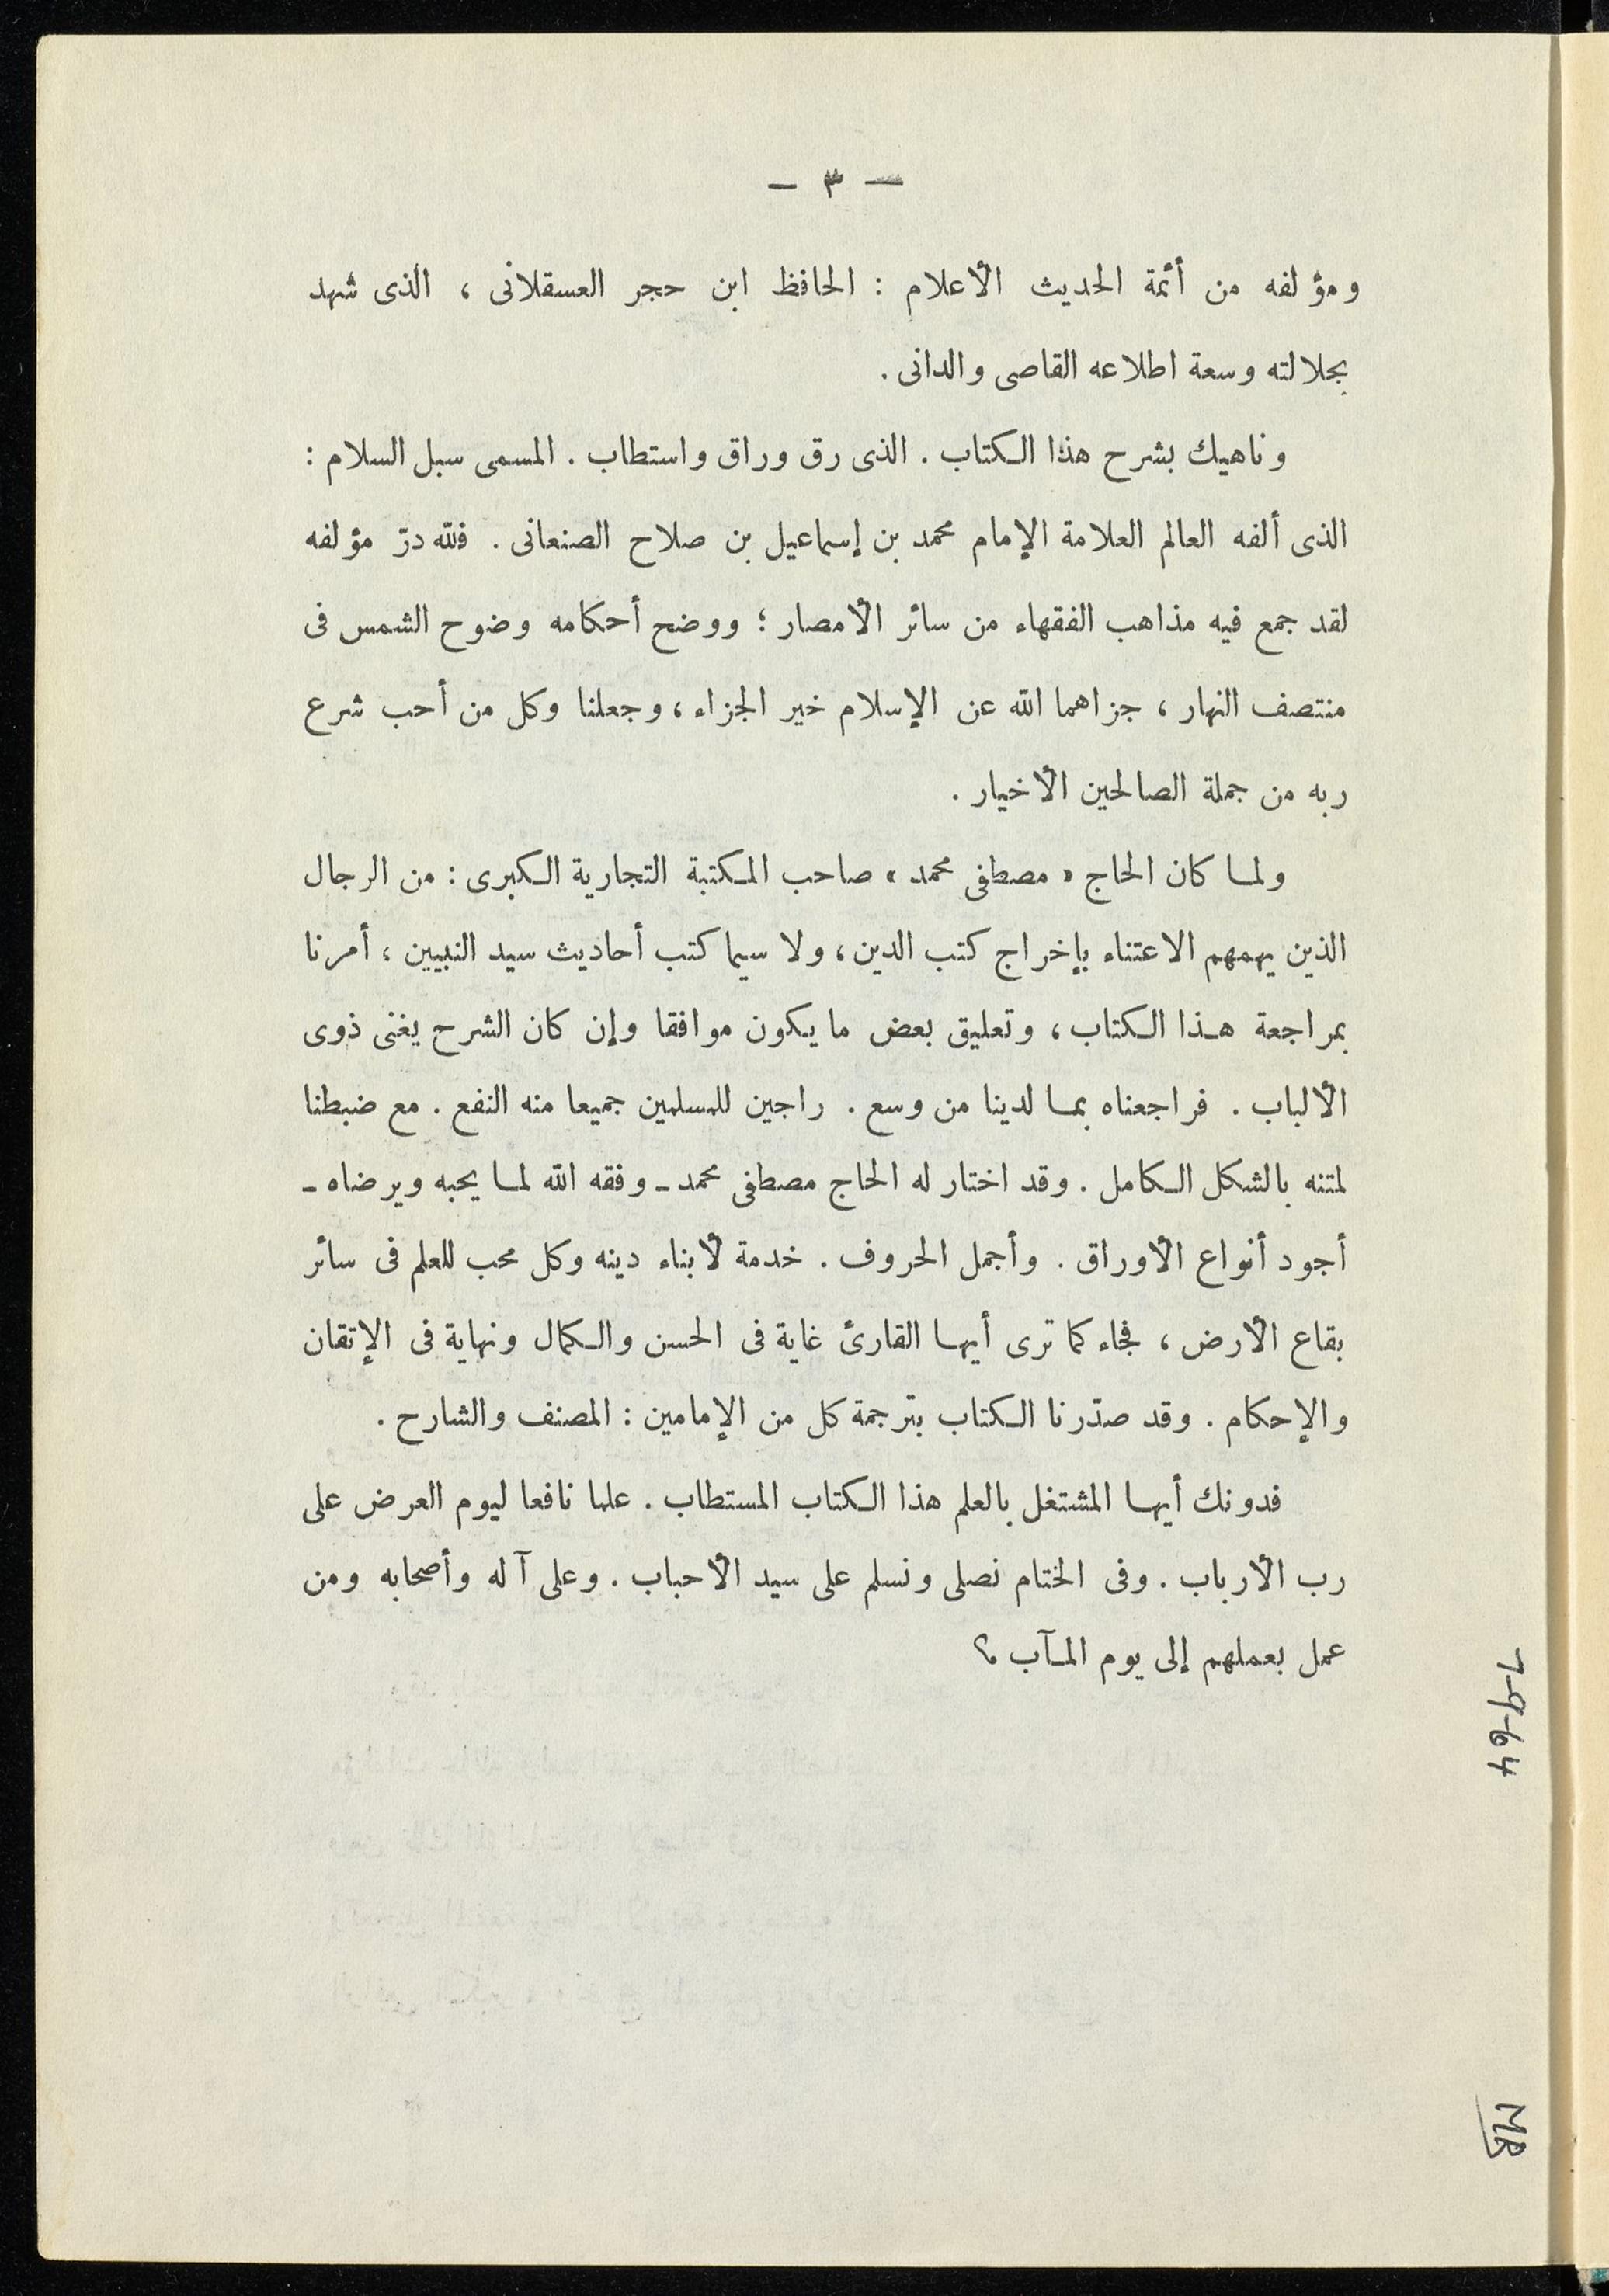 — ٣ —
ومؤلفه من أئمة الحديث الأعلام : الحافظ ابن حجر العسقلانى ، الذى شهد
بجلالته وسعة اطلاعه القاصى والدانى .
وناهيك بشرح هذا الكتاب . الذى رق وراق واستطاب . المسمى سبل السلام :
الذى ألفه العالم العلامة الإمام محمد بن إسماعيل بن صلاح الصنعانى . فلله درّ مؤلفه
لقد جمع فيه مذاهب الفقهاء من سائر الأمصار ؛ ووضح أحكامه وضوح الشمس فى
منتصف النهار ، جزاهما الله عن الإسلام خير الجزاء ، وجعلنا وكل من أحب شرع
ربه من جملة الصالحين الأخيار .
ولما كان الحاج « مصطفى محمد » صاحب المكتبة التجارية الكبرى : من الرجال
الذين يهمهم الاعتناء بإخراج كتب الدين ، ولا سيما كتب أحاديث سيد النبيين ، أمرنا
بمراجعة هذا الكتاب ، وتعليق بعض ما يكون موافقا وإن كان الشرح يغنى ذوى
الألباب . فراجعناه بما لدينا من وسع . راجين للمسلمين جميعا منه النفع . مع ضبطنا
لمتنه بالشكل الكامل . وقد اختار له الحاج مصطفى محمد ـ وفقه الله لما يحبه ويرضاه ـ
أجود أنواع الأوراق . وأجمل الحروف . خدمة لأبناء دينه وكل محب للعلم فى سائر
بقاع الأرض ، فجاء كما ترى أيها القارئ غاية فى الحسن والكمال ونهاية فى الإتقان
والإحكام . وقد صدّرنا الكتاب بترجمة كل من الإمامين : المصنف والشارح .
فدونك أيها المشتغل بالعلم هذا الكتاب المستطاب . علما نافعا ليوم العرض على
رب الأرباب . وفى الختام نصلى ونسلم على سيد الأحباب . وعلى آله وأصحابه ومن
عمل بعملهم إلى يوم المآب ؟
7-9-64
MR